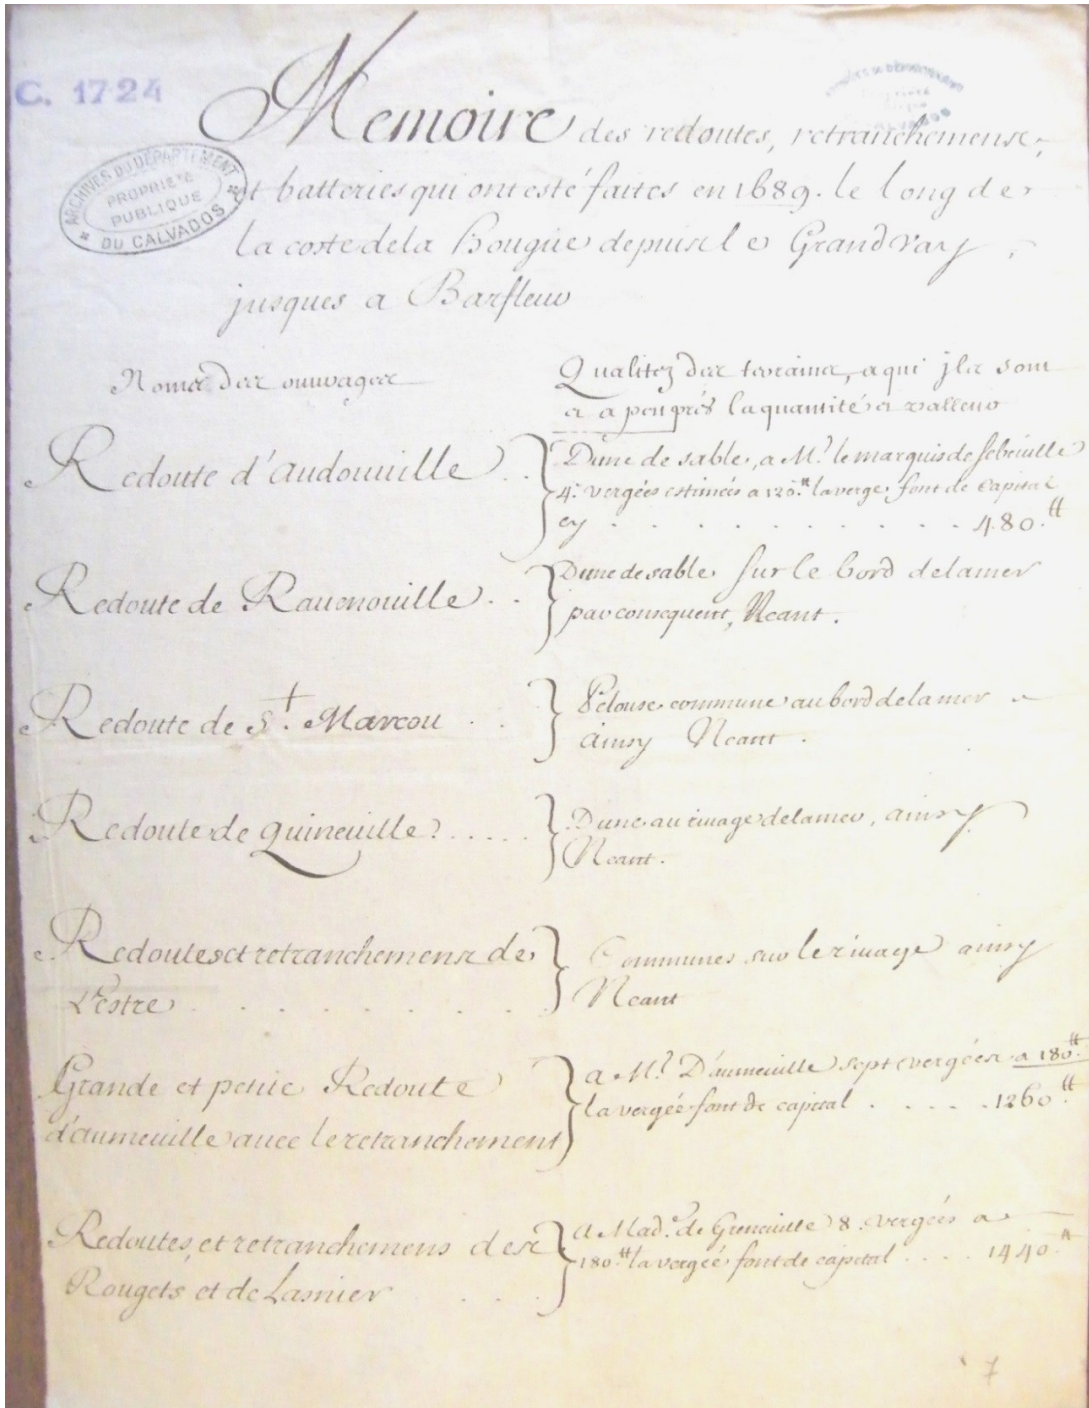 C. 1724
ARCHIVES DU DÉPARTEMENT
PROPRIÉTÉ
PUBLIQUE
DU CALVADOS
Memoire des redoutes, retranchemens,
et batteries qui ont esté faites en 1689. le long de
la coste de la Hougue depuis le Grand Vay
jusques a Barfleur
Noms des ouvrages
Qualitez des terrains, a qui jls sont
et a peu prés la quantité et valleur
Redoute d'audouuille . .
Dune de sable, a Mr. le marquis de sebeuille
4. vergées estimées a 120.tt la vergé font de capital
cy . . . . . . . . . . 480.tt
Redoute de Rauenouille . .
Dune de sable sur le bord de la mer
par consequent, Neant.
Redoute de St. Marcou . .
Pelouse commune au bord de la mer
ainsy Neant.
Redoute de quineuille . . . . .
Dune au riuage de la mer, ainsy
Neant.
Redoutes et retranchemens de
L'estre . . . . . . .
Communes sur le riuage ainsy
Neant
Grande et petite Redoute
d'aumeuille auec le retranchement
a Mr. D'aumeuille sept vergées a 180.tt
la vergée font de capital . . . . . 1260.tt
Redoutes, et retranchemens des
Rougets et de Lasnier . . .
a Made. de Greneuille 8. vergées a
180.tt la vergée font de capital . . . . 1440.tt
7